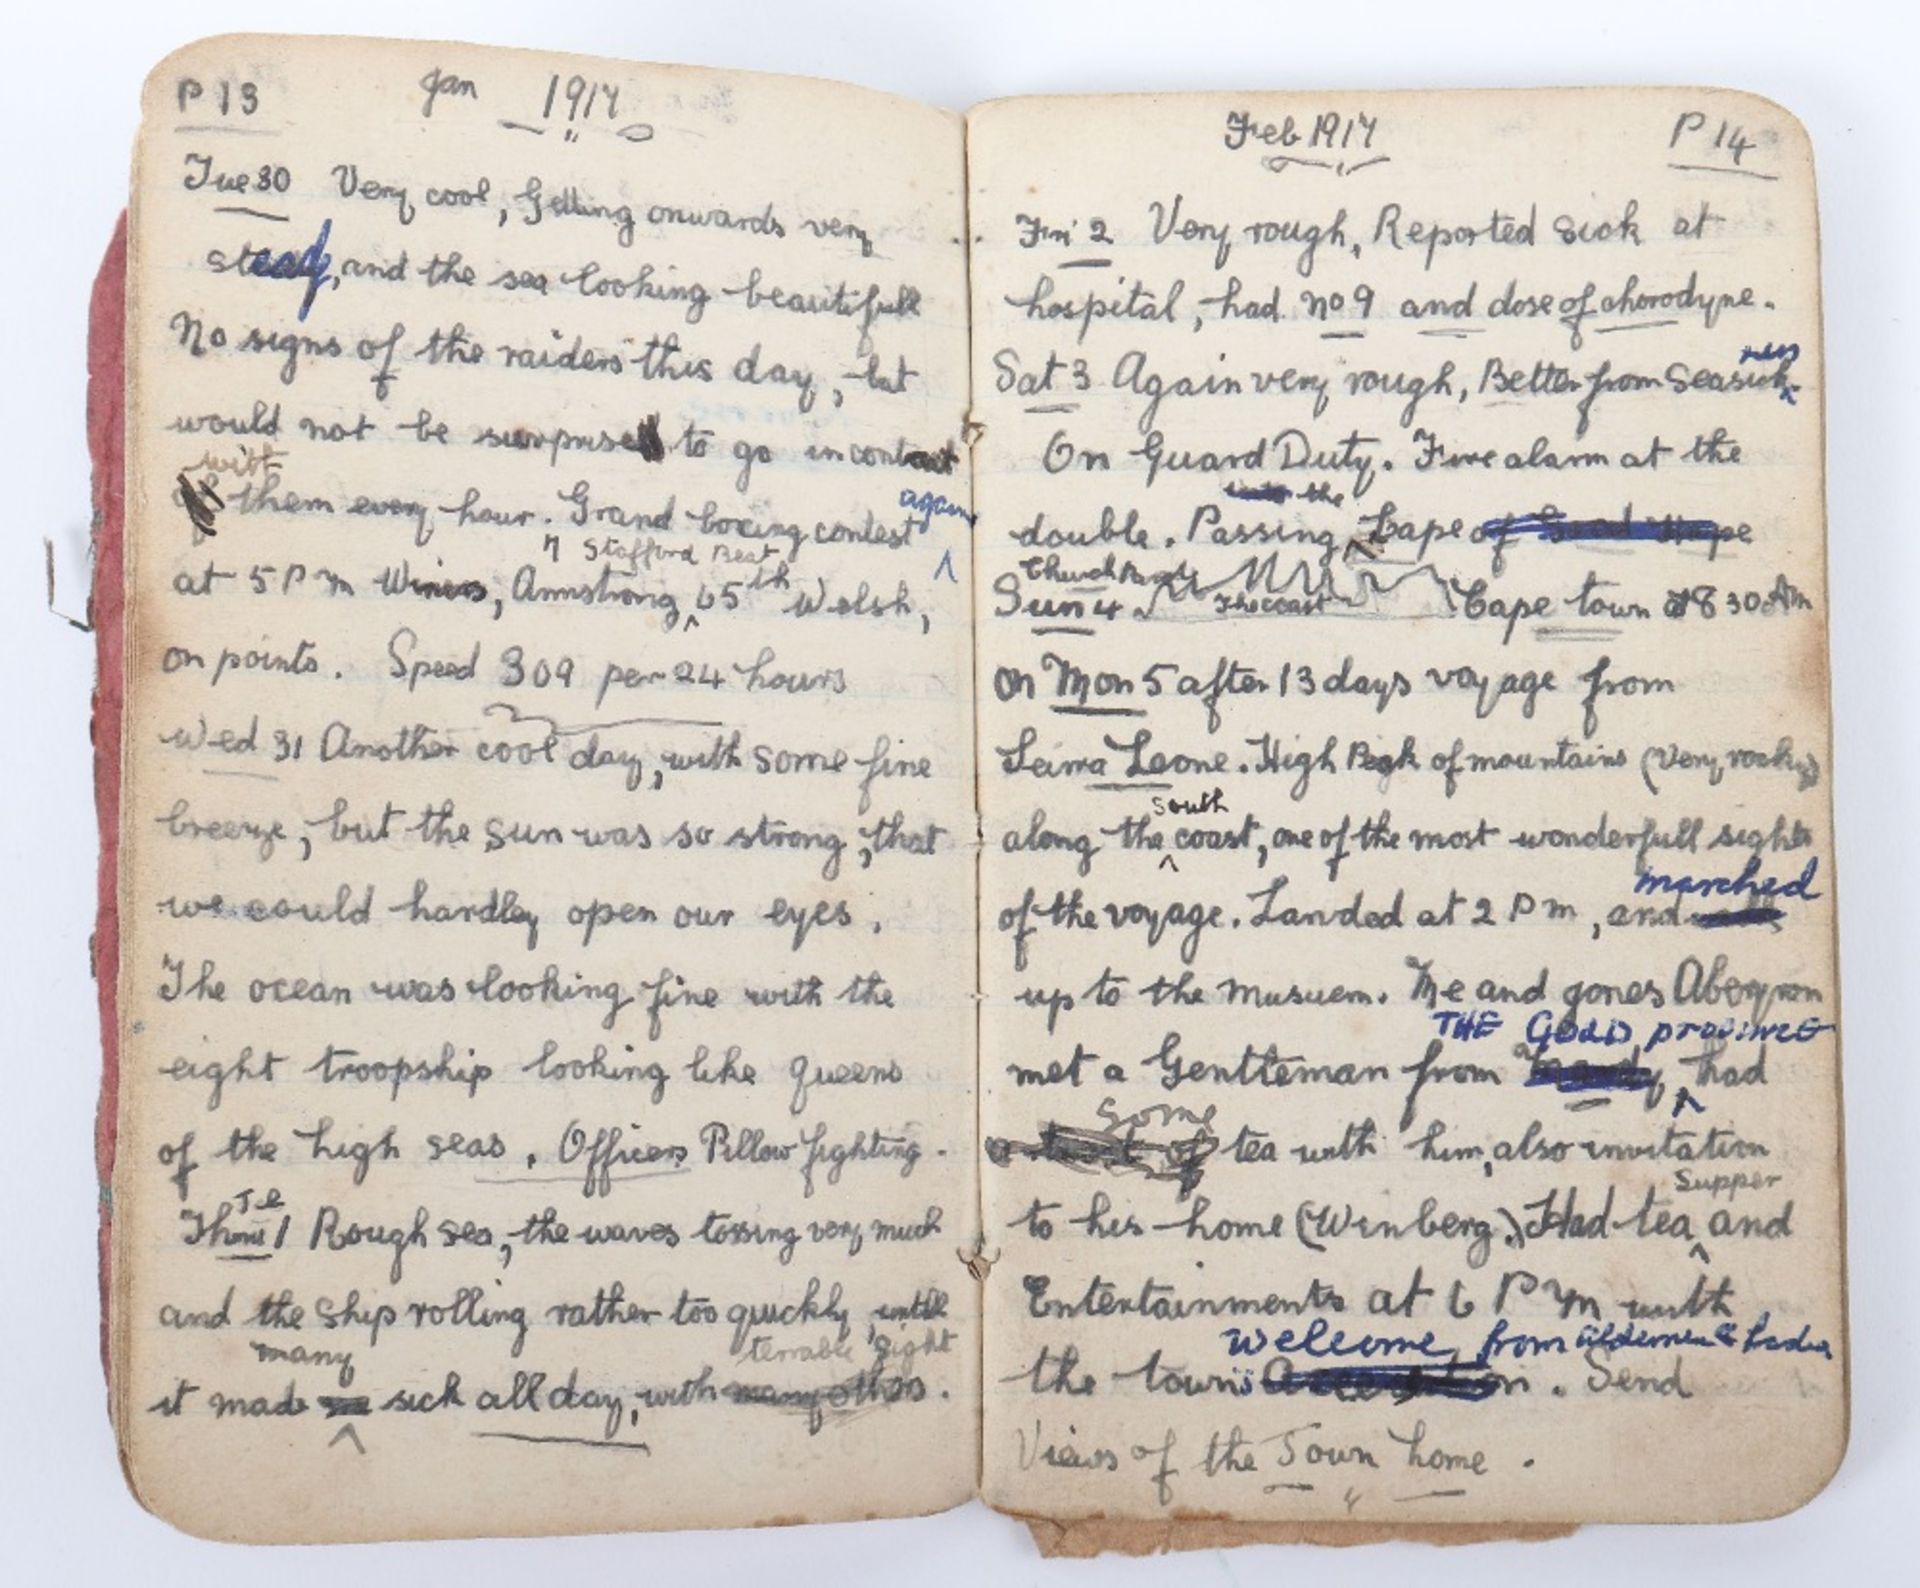 P 13 Jan 1917
Tue 30 Very cool, Getting onwards very
steady, and the sea looking beautifull
No signs of the raiders this day, but
would not be surprise to go in contact
with
them every hour. Grand boxing contest again
N Stafford Beat
at 5 P m Winers, Armstrong 65th Welsh,
on points. Speed 309 per 24 hours
Wed 31 Another cool day, with some fine
breeze, but the sun was so strong, that
we could hardley open our eyes.
The ocean was looking fine with the
eight troopship looking like queens
of the high seas. Officers Pillow fighting.
Thurs 1 Rough sea, the waves tossing very much
and the ship rolling rather too quickly, untill
many terrable sight
it made sick all day, with many others.
Feb 1917 P 14
Fri 2 Very rough, Reported Sick at
hospital, had no 9 and dose of chorodyne.
ness
Sat 3 Again very rough, Better from Seasick
On Guard Duty. Fire alarm at the
into the
double. Passing Cape of Good Hope
Church Parade
Sun 4 The coast Cape town at 8 30 Am
on Mon 5 after 13 days voyage from
Seirra Leone. High Peak of mountains (Very rocky)
south
along the coast, one of the most wonderfull sights
marched
of the voyage. Landed at 2 P m, and
up to the musuem. Me and Jones Abergron
THE GOLD PROVINCE
met a Gentleman from had
some
of tea with him, also invitation
Supper
to his home (Winberg). Had tea and
Entertainments at 6 P m with
Welcome from Aldermen &
the towns. Send
Views of the Town home.